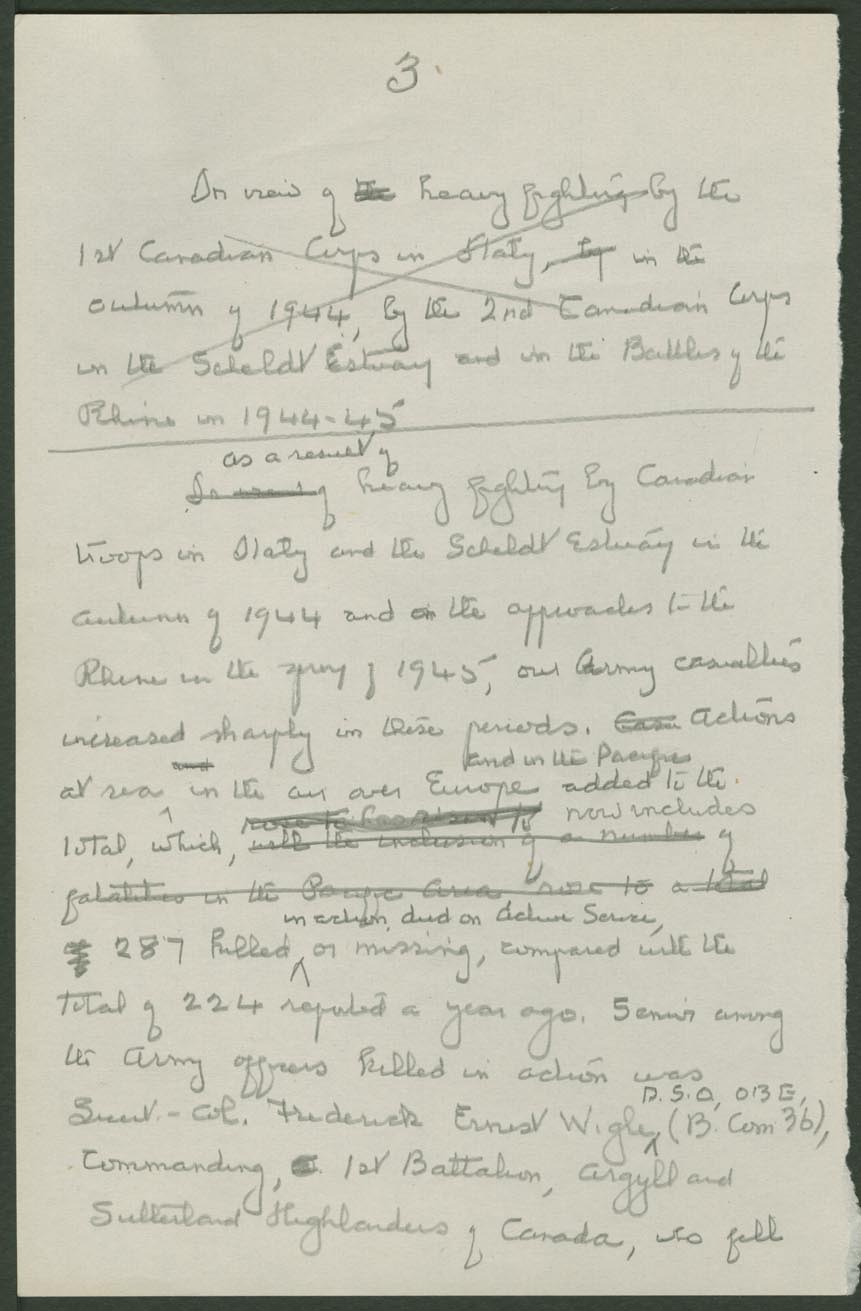 3.
In view of the heavy fighting by the
1st Canadian Corps in Italy, by in the
autumn of 1944, by the 2nd Canadian Corps
in the Scheldt Estuary and in the Battles of the
Rhine in 1944-45
as a result of
In view of heavy fighting by Canadian
troops in Italy and the Scheldt Estuary in the
autumn of 1944 and on the approaches to the
Rhine in the spring of 1945, our Army casualties
increased sharply in these periods. Actions
and and in the Pacific
at sea in the air over Europe added to the
rose to now includes
total, which, with the inclusion of a number of
fatalities in the Pacific area rose to a total
in action, died on Active Service,
287 killed, or missing, compared with the
total of 224 reported a year ago. Senior among
the Army officers killed in action was
D.S.O, OBE,
Lieut.-Col. Frederick Ernest Wigle, (B. Com 36),
Commanding, 1st Battalion, Argyll and
Sutherland Highlanders of Canada, who fell